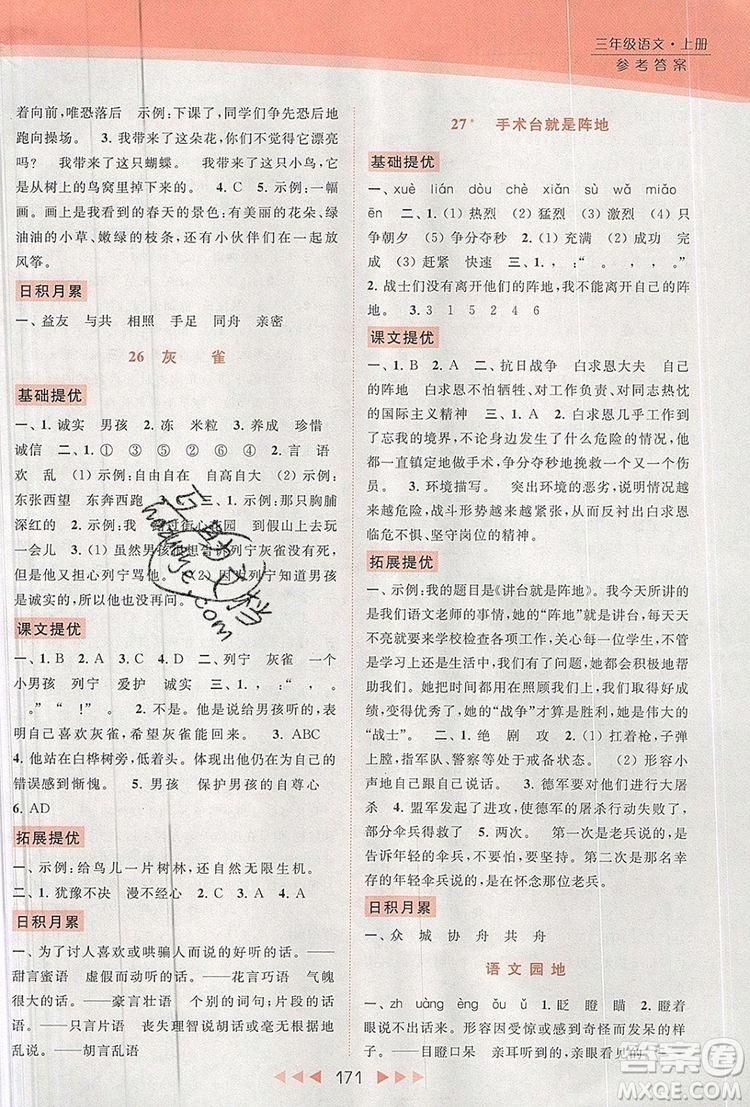 三年级语文·上册
参考答案
着向前，唯恐落后　示例：下课了，同学们争先恐后地
跑向操场。　3. 我带来了这朵花，你们觉得它漂亮
吗？　我带来了这只蝴蝶。　我带来了这只小鸟，我
是从树上的鸟窝里得到的。　4. C　5. 示例：一幅
画。画上是我看到的春天的景色：有美丽的花朵、绿
油油的小草、嫩绿的枝条，还有小伙伴们在一起放
风筝。
日积月累
一、益友　与共　相照　手足　同舟　亲密
26　灰　雀
基础提优
一、1. 诚实　男孩　2. 冻　米粒　3. 养成　珍惜
诚信　二、1. ①　④　②　③　⑤　2. 言　语
欢　乱　(1) 示例：自由自在　自高自大　(2) 示例：
东张西望　东奔西跑　三、1. 示例：那只胸脯
深红的　2. 示例：我　路过街心花园　到假山上去玩
一会儿　3. (1) 虽然男孩很想告诉列宁灰雀没有死，
但是他又担心列宁骂他。　(2) 因为列宁知道男孩
是诚实的，所以他没再问。
课文提优
一、1. B　2. A　3. C　4. C　二、列宁　灰雀　一个
小男孩　列宁　爱护　诚实　三、1. ：　“　，　。
。”　“　！”　。　2. 不是。他是说给男孩听的，表
明自己喜欢灰雀，希望灰雀能回来。　3. ABC
4. 他站在白桦树旁，低着头。　他因为对自己的
错误感到惭愧。　5. 男孩　保护男孩的自尊心
6. AD
拓展提优
一、示例：给鸟儿一片树林，还大自然无限生机。
二、1. 犹豫不决　漫不经心　2. C　3. A　4. A
日积月累
一、为了讨人喜欢或哄骗人而说的好听的话。——
甜言蜜语　虚假而动听的话。——花言巧语　气魄
很大的话。——豪言壮语　个别的词句；片段的话。
——只言片语　丧失理智说的胡话；没有根据，不符
实际的瞎说，或说胡话。——胡言乱语
27*　手术台就是阵地
基础提优
一、xuè　lián　dòu　chè　xiǎn　sù　wǎ　miǎo
ēn　二、1. (1) 热烈　(2) 猛烈　(3) 激烈　(4) 只
争朝夕　(5) 争分夺秒　2. (1) 充满　(2) 成功　完
成　(3) 赶紧　快速　三、1. ：　“　，　，　。　”
2. 战士们没有离开他们的阵地，我也没有离开我的
阵地。　3. 3　1　5　2　4　6
课文提优
一、1. B　2. A　二、抗日战争　白求恩大夫　自己
的阵地　白求恩不怕牺牲、对工作负责、对同志关爱
的国际主义精神　三、1. B　2. 白求恩几乎工作到了
忘我的境界，不论外面发生了什么危险的情况，他都
一直镇定地做手术，争分夺秒地抢救伤员，没有离开
自己的阵地。　3. 环境描写。　突出环境的恶劣，说明情况越
来越危险、战斗形势越来越紧张，从而反衬出白求恩
临危不惧、坚守岗位的精神。
拓展提优
一、示例：我的题目是《讲台就是阵地》。我今天要讲
的是我们语文老师的事情，她的“阵地”就是讲台，每天天
不亮就要来学校检查各项工作，关心每一个同学，不管
是学习上还是生活上的问题，她都会在第一时间帮助
我们。她把所有的时间都用在照顾我们上，她把我们
变得优秀了，她的“战争”才算是胜利，她是一名真正的
“战士”。　二、1. 绝　剧　攻　2. (1) 扛着枪，子弹
上膛，指军队、警察等处于戒备状态。　(2) 形容小
声地自己跟自己说话。　3. 德军要对村子进行大屠
杀　4. 盟军发起了进攻，使德军的屠杀行动没有进行
　5. 两次。　第一次是老兵说的，
告诉年轻的伞兵，一切安好。第二次是多年后幸
存的年轻伞兵说的，是在怀念那位老兵。
日积月累
一、众　城　协　舟　共　舟
语文园地
一、zh　uàng　èng　ǒu　ǔ　二、1. 眨　瞪　瞄　2. 瞪着
眼说不出话来。形容因受惊或感动而变得发愣的样
子。——目瞪口呆　亲耳听到的，亲眼看见的。——
171